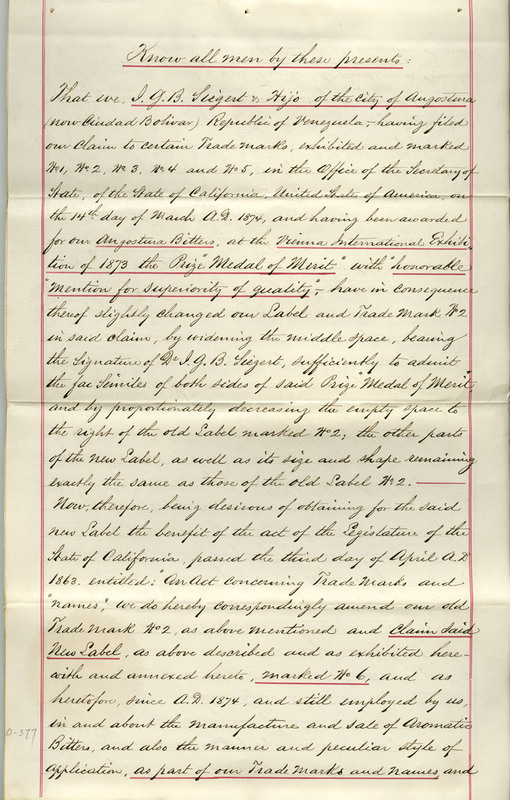 Know all men by these presents:
That we, J. G. B. Siegert & Hijo, of the City of Angostura
(now Ciudad Bolivar) Republic of Venezuela, having filed
our Claim to certain Trade Marks, exhibited and marked
No 1, No 2, No 3, No 4 and No 5, in the Office of the Secretary of
State, of the State of California, United States of America, on
the 14th day of March A.D. 1874, and having been awarded
for our Angostura Bitters, at the Vienna International Exhibi-
tion of 1873 the Prize "Medal of Merit" with "honorable
"Mention for superiority of quality", have in consequence
thereof slightly changed our Label and Trade Mark No 2
in said claim, by widening the middle space, bearing
the Signature of Dr J. G. B. Siegert, sufficiently to admit
the fac Similes of both sides of said Prize "Medal of Merit",
and by proportionately decreasing the empty space to
the right of the old Label marked No 2; the other parts
of the new Label, as well as its size and shape remaining
exactly the same as those of the old Label No 2.
Now, therefore, being desirous of obtaining for the said
new Label the benefit of the act of the Legislature of the
State of California, passed the third day of April A.D.
1863. entitled: "An Act Concerning Trade Marks and
"names", we do hereby correspondingly amend our old
Trade Mark No 2, as above mentioned and Claim said
New Label, as above described and as exhibited here-
with and annexed hereto, marked No 6, and as
heretofore, since A.D. 1874, and still employed by us,
in and about the manufacture and sale of Aromatic
Bitters, and also the manner and peculiar style of
application, as part of our Trade Marks and names and
0-377